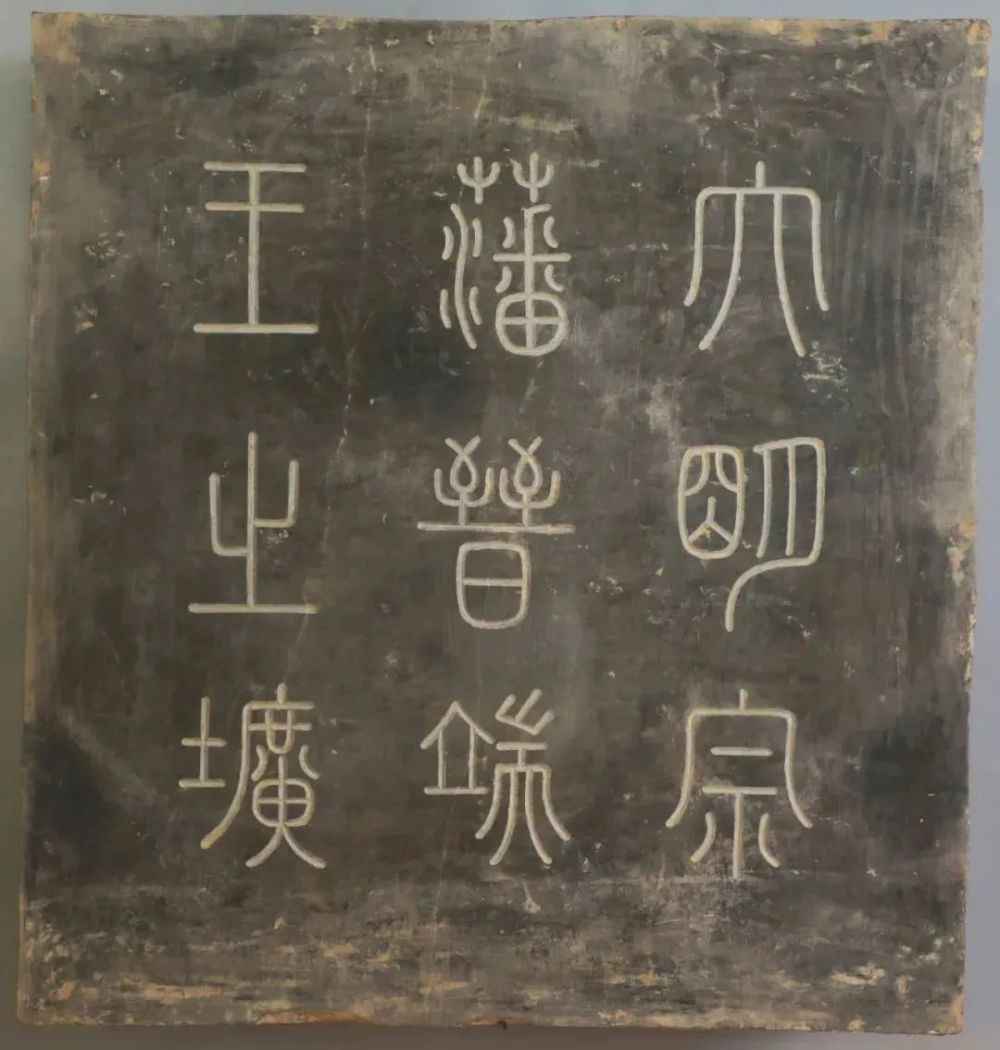 大明宗
藩晉端
王之壙